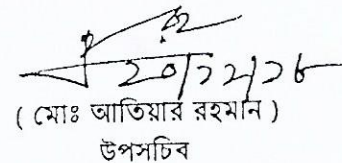 ২০/১২/১৮
( মোঃ আতিয়ার রহমান )
উপসচিব